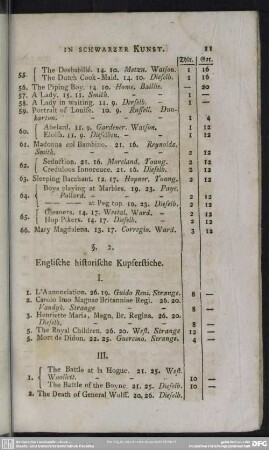 IN SCHWARZER KUNST. 11
Thlr. Ggr.
55. { The Deshabillé. 14. 10. Metzu. Watson. 1 16
The Dutch Cook-Maid. 14. 10. Dieselb. 1 16
56. The Piping Boy. 14. 10. Home. Baillie. — 20
57. A Lady. 15. 11. Smith. 1 —
58. A Lady in waiting. 11. 9. Derselb. 1 —
59. Portrait of Louise. 10. 9. Russell. Dun-
karton. 1 4
60. { Abelard. 11. 9. Gardener. Watson. 1 12
Eloisa. 11. 9. Dieselben. 1 12
61. Madonna col Bambino. 21. 16. Reynolds.
Smith. 2 12
62. { Seduction. 21. 16. Moreland. Young. 2 12
Credulous Innocence. 21. 16. Dieselb. 2 12
63. Sleeping Bacchant. 12. 17. Hopner. Young. 2 12
64. { Boys playing at Marbles. 19. 23. Paye.
Pollard. 2 12
—— —— at Peg top. 19. 23. Dieselb. 2 12
65. { Gleaners. 14. 17. Westal. Ward. 2 12
Hop Pikers. 14. 17. Dieselb. 2 12
66. Mary Magdalena. 13. 17. Corregio. Ward. 3 12
§. 2.
Englische historische Kupferstiche.
I.
1. L'Annonciation. 26. 19. Guido Reni. Strange. 8 —
2. Carolo Imo Magnae Britanniae Regi. 26. 20.
Vandyk. Strange 8 —
3. Henriette Maria, Magn. Br. Regina. 26. 20.
Dieselb. 8 —
5. The Royal Children. 26. 20. West. Strange 12 —
5. Mort de Didon. 22. 25. Guercino. Strange. 4 —
III.
1. { The Battle at la Hogue. 21. 25. West.
Woollett. 10 —
The Battle of the Boyne. 21. 25. Dieselb. 10 —
2. The Death of General Wulff. 20. 26. Dieselb.